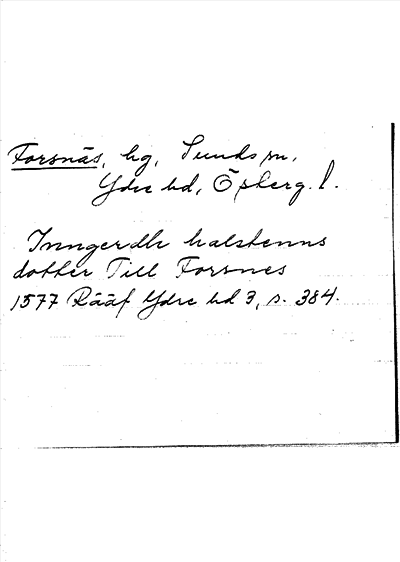 Forsnäs, hg, Sunds sn,
Ydre hd, Östergl.
Inngerdh halstenns
dotther Till Forsnes
1577 Rääf Ydre hd 3, s. 384.